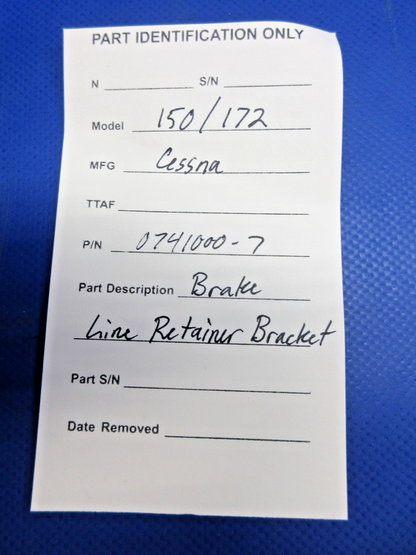 PART IDENTIFICATION ONLY
N S/N
Model 150/172
MFG Cessna
TTAF
P/N 0741000-7
Part Description Brake
Line Retainer Bracket
Part S/N
Date Removed